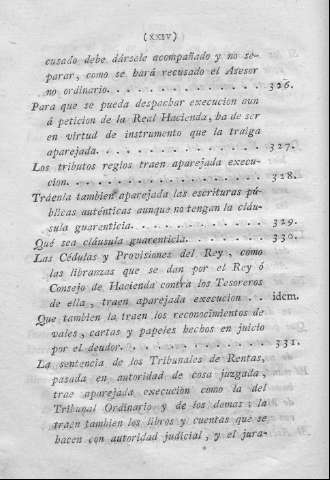 (XXIV)
cusado debe dársele acompañado y no se-
parar, como se hará recusado el Asesor
no ordinario. . . . . . . . . . . . . . . . 326.
Para que se pueda despachar execucion aun
á peticion de la Real Hacienda, ha de ser
en virtud de instrumento que la traiga
aparejada. . . . . . . . . . . . . . . . . 327.
Los tributos regios traen aparejada execu-
cion. . . . . . . . . . . . . . . . . . . . 328.
Tráenla tambien aparejada las escrituras pú-
blicas auténticas aunque no tengan la cláu-
sula guarenticia. . . . . . . . . . . . . . 329.
Qué sea cláusula guarenticia. . . . . . . . 330.
Las Cédulas y Provisiones del Rey, como
las libranzas que se dan por el Rey ó
Consejo de Hacienda contra los Tesoreros
de ella, traen aparejada execucion . . idem.
Que tambien la traen los reconocimientos de
vales, cartas y papeles hechos en juicio
por el deudor. . . . . . . . . . . . . . . 331.
La sentencia de los Tribunales de Rentas,
pasada en autoridad de cosa juzgada,
trae aparejada execucion como la del
Tribunal Ordinario y de los demas; la
traen tambien los libros y cuentas que se
hacen con autoridad judicial, y el jura-